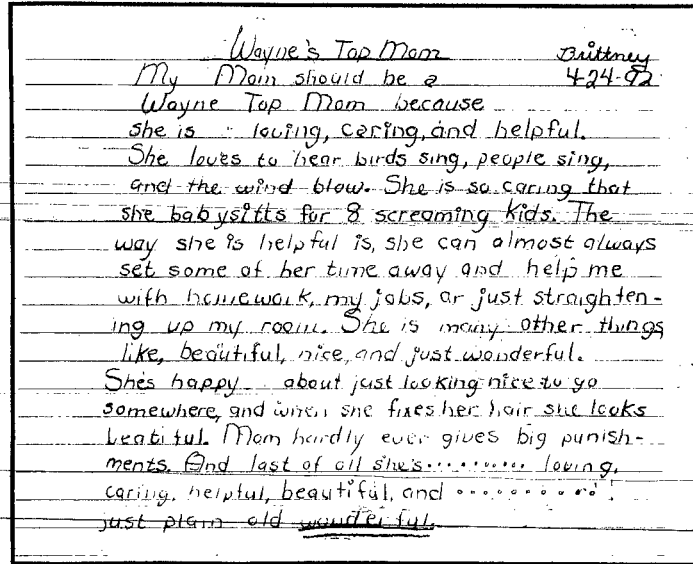 Wayne's Top Mom Brittney
My Mom should be a 4-24-92
Wayne Top Mom because
she is loving, caring, and helpful.
She loves to hear birds sing, people sing,
and the wind blow. She is so caring that
she babysitts for 8 screaming kids. The
way she is helpful is, she can almost always
set some of her time away and help me
with homework, my jobs, or just straighten-
ing up my room. She is many other things
like, beautiful, nice, and just wonderful.
She's happy about just looking nice to go
somewhere, and when she fixes her hair she looks
beatiful. Mom hardly ever gives big punish-
ments. And last of all she's.......... loving,
caring, helpful, beautiful, and ..........
just plain old wonderful.